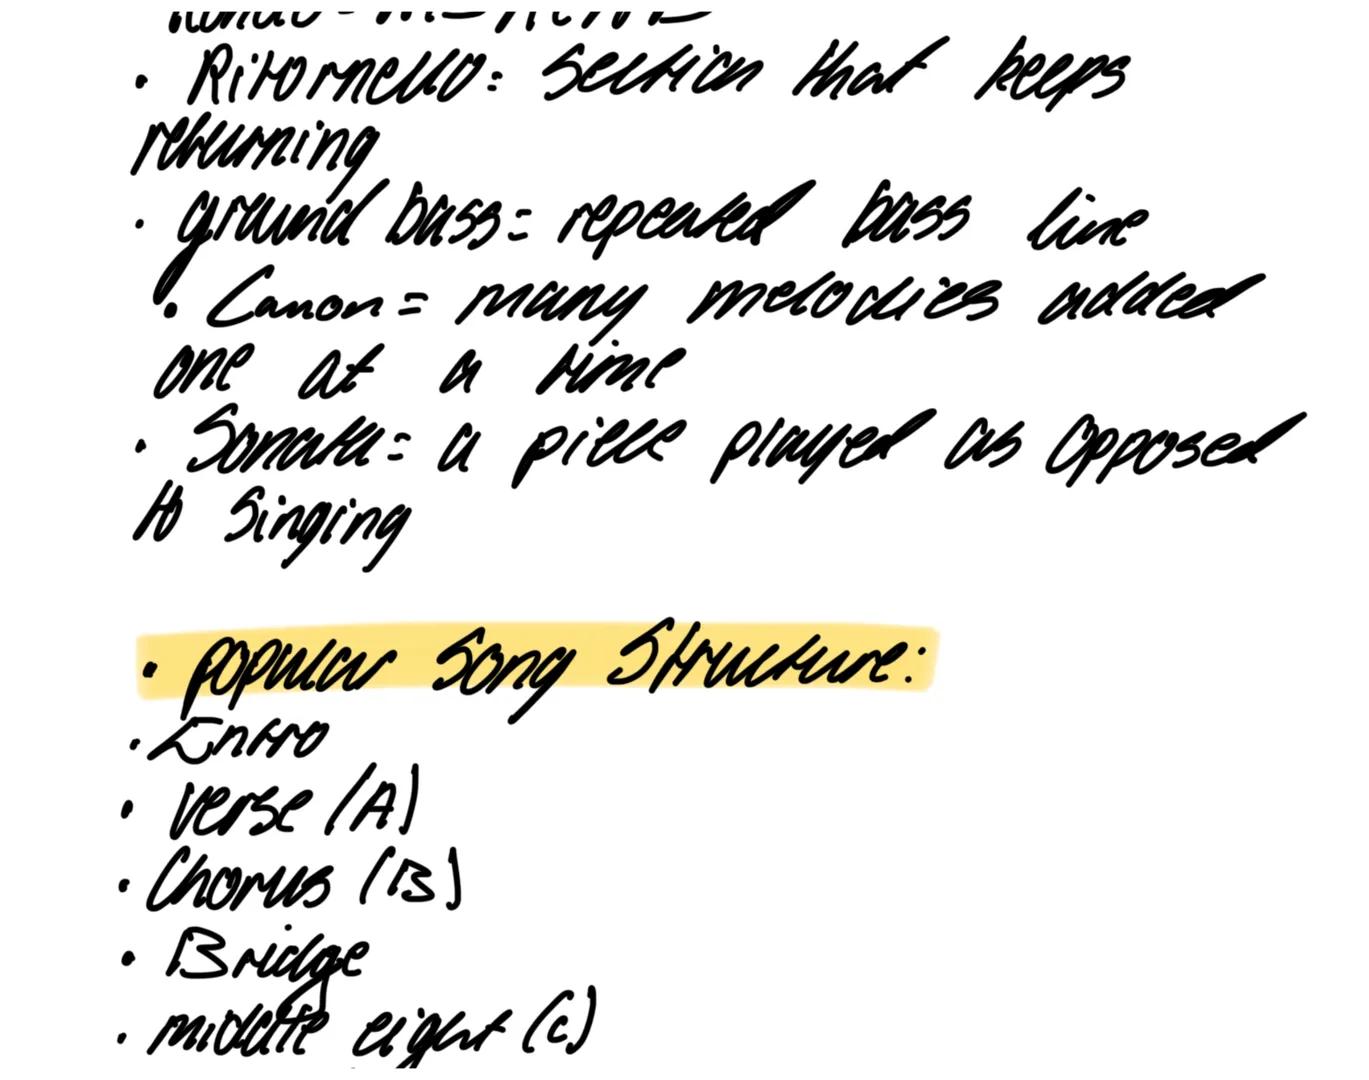 • Ritornello: Section that keeps
returning
• ground bass = repeated bass line
• Canon = many melodies added
one at a time
• Sonata = a piece played as opposed
to singing
• popular Song Structure:
• Intro
• verse (A)
• Chorus (B)
• Bridge
• middle eight (C)